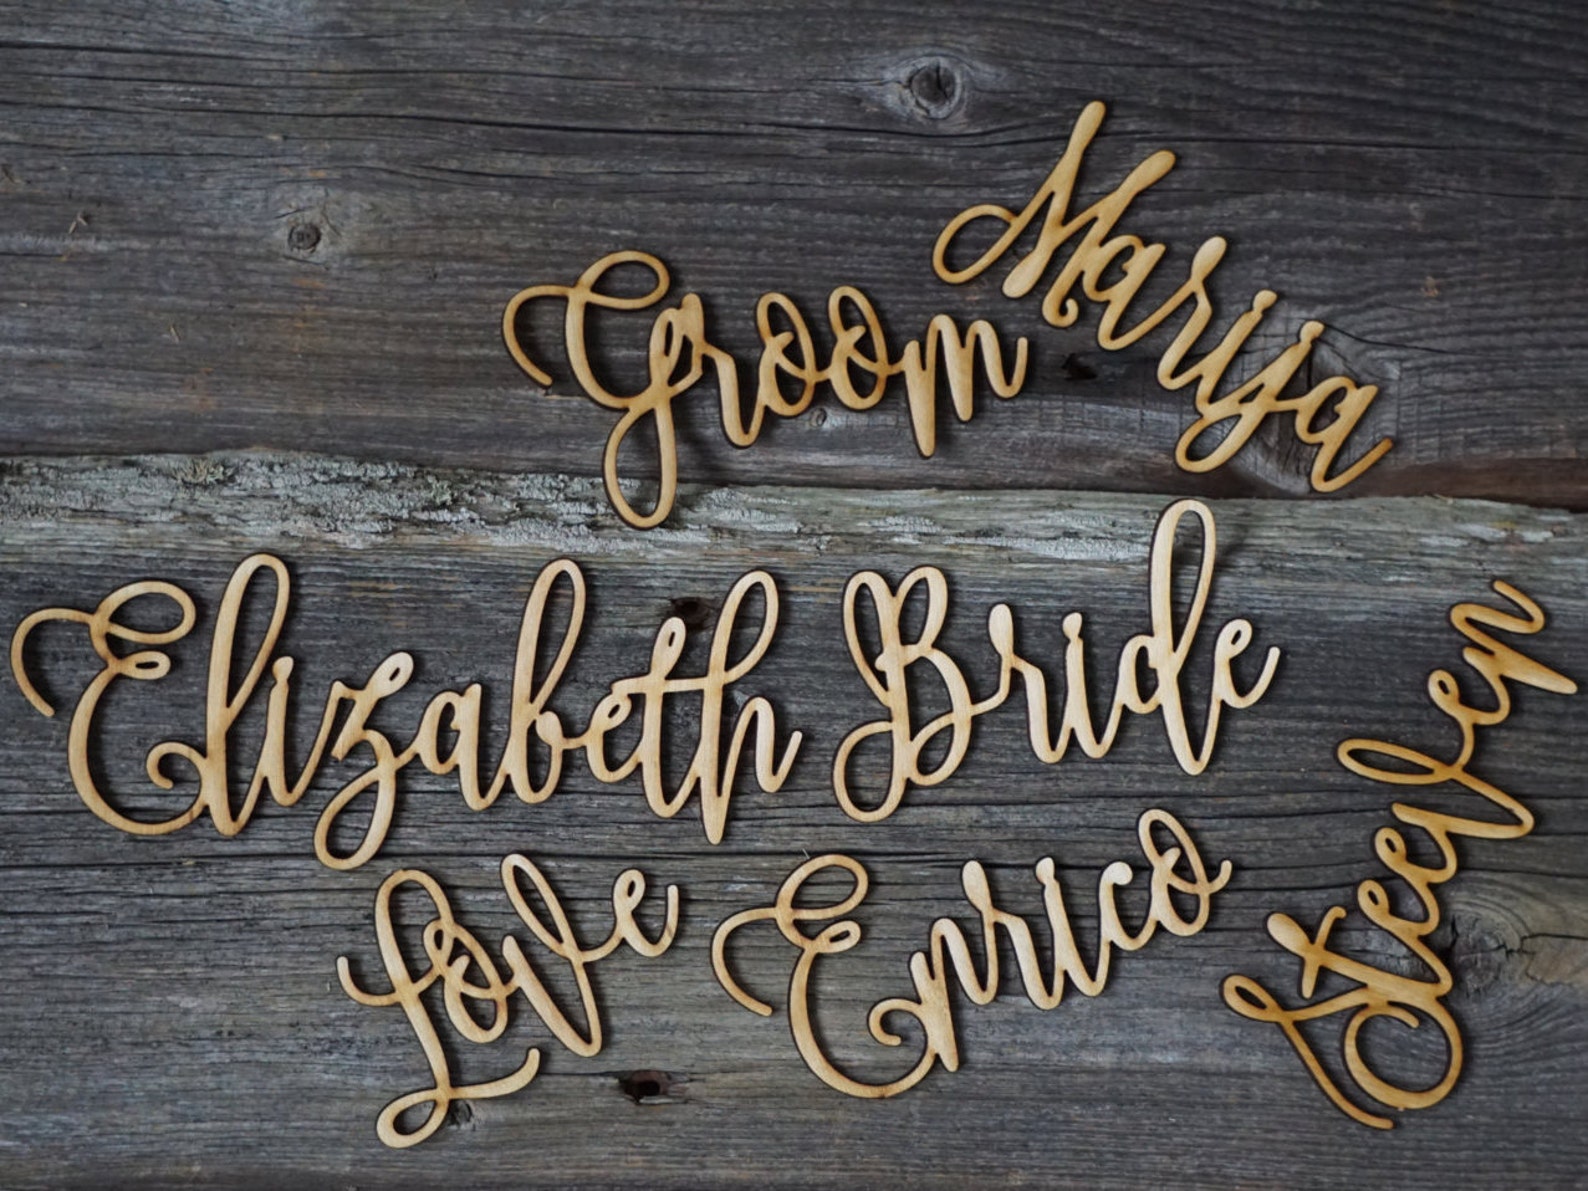 Marija
Groom
Elizabeth Bride
Love
Enrico
Steeven